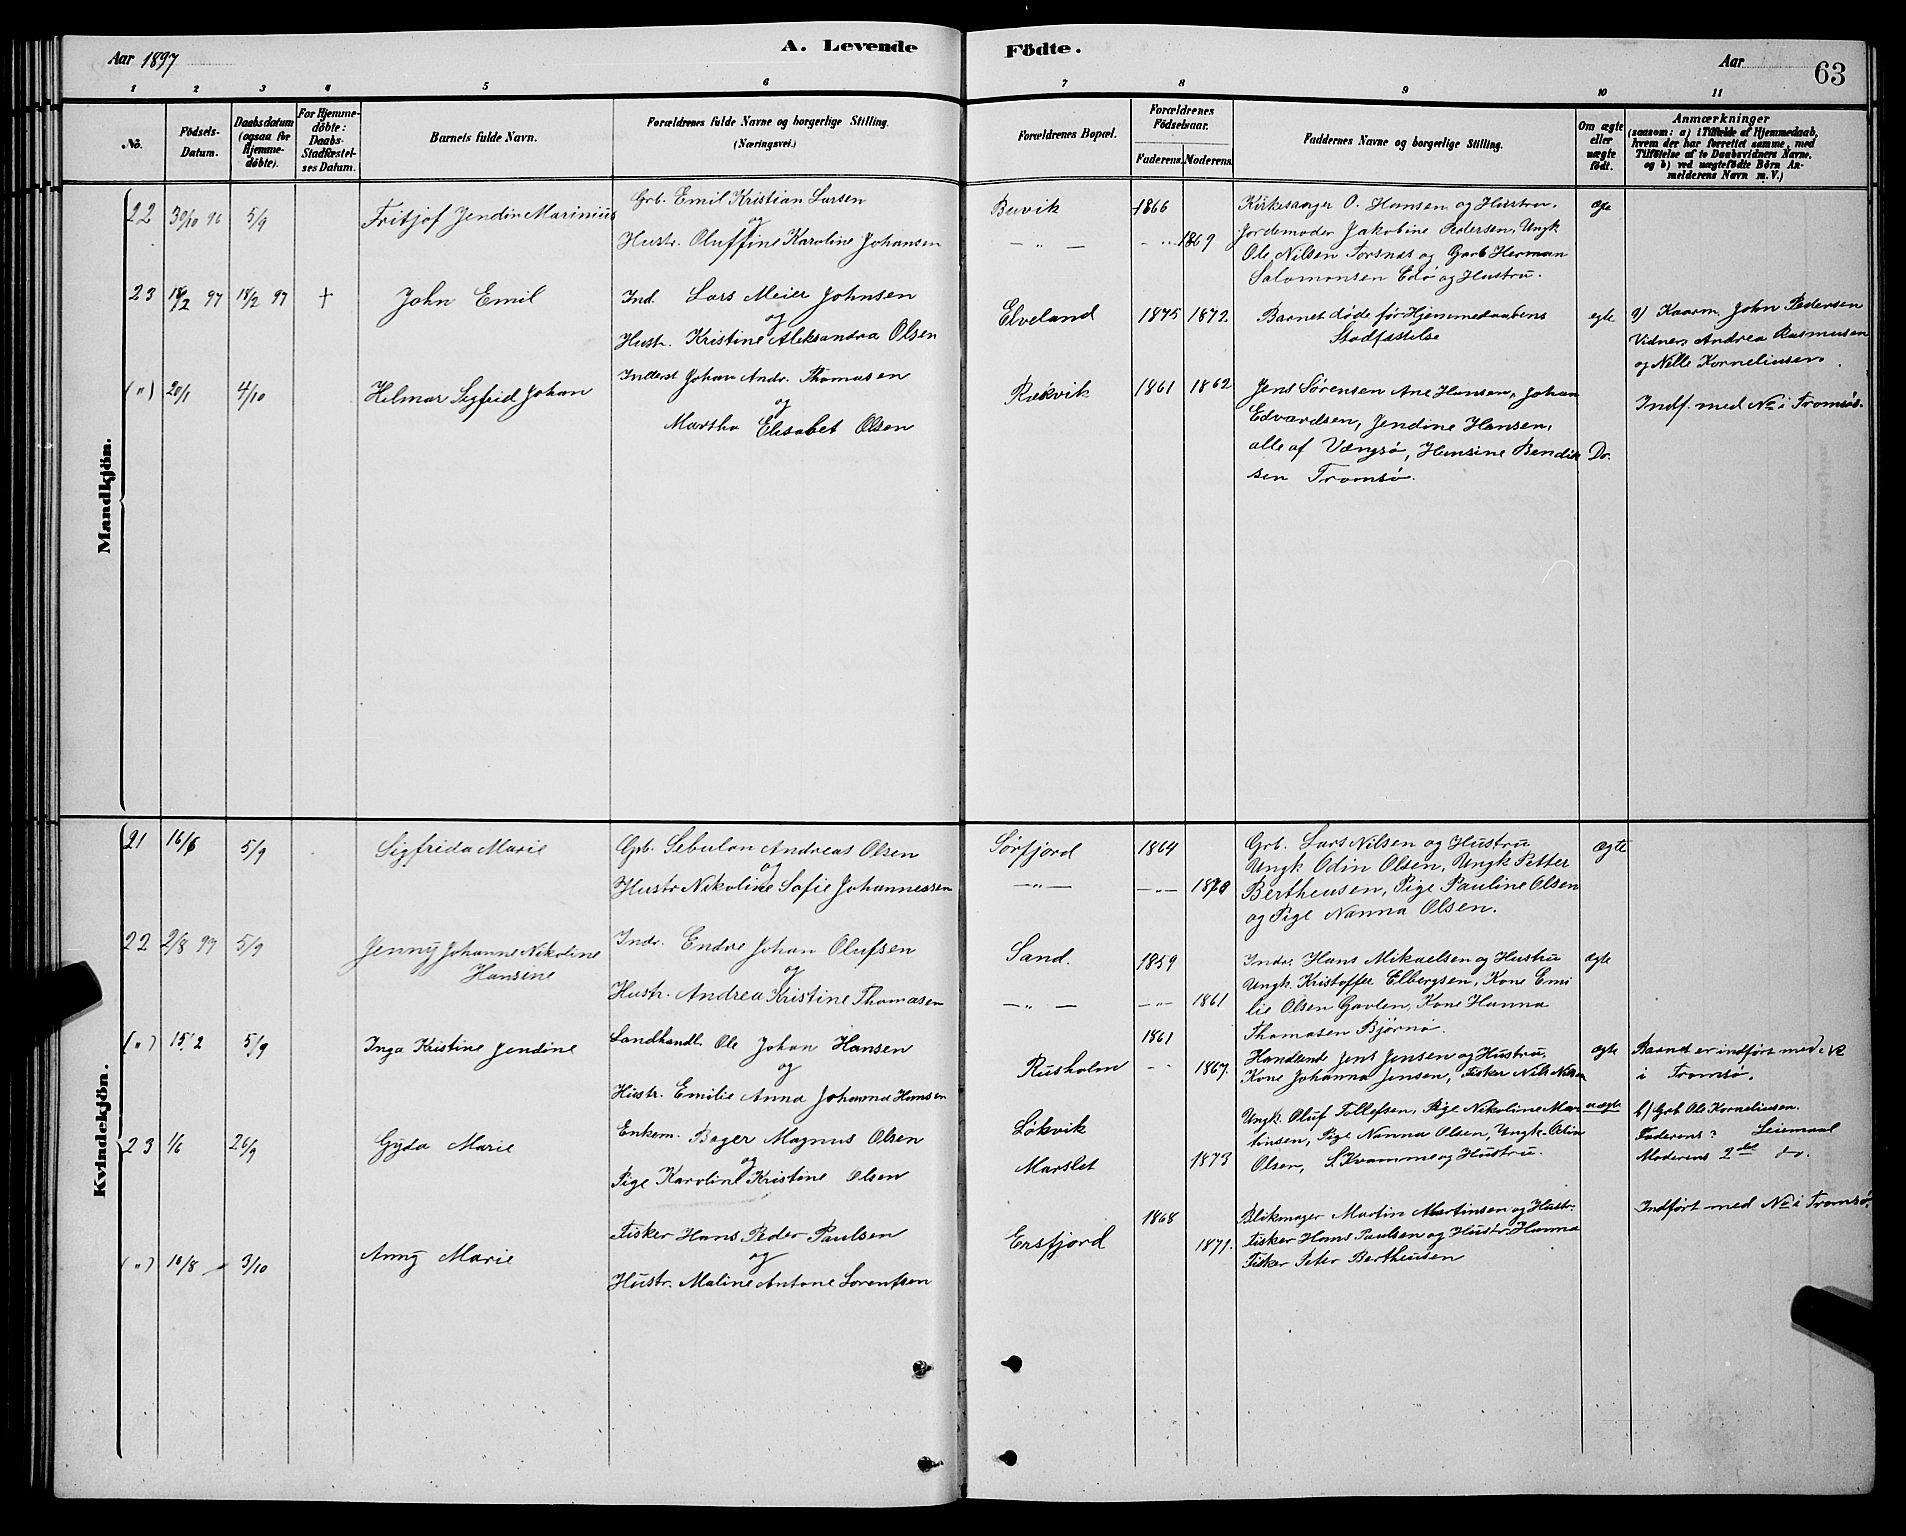 Aar 1897
A. Levende
Födte.
Aar
63
1
2
3
4
5
6
7
8
9
10
11
No.
Födsels-
Datum.
Daabsdatum
(ogsaa for
Hjemme-
döbte).
For Hjemme-
döbte:
Daabs-
Stadfæstel-
ses Datum.
Barnets fulde Navn.
Forældrenes fulde Navne og borgerlige Stilling.
(Næringsvei.)
Forældrenes Bopæl.
Forældrenes
Födselsaar.
Faderens.
Moderens.
Faddernes Navne og borgerlige Stilling.
Om ægte
eller
uægte
födt.
Anmærkninger
(saasom: a) i Tilfælde af Hjemmedaab,
hvem der har forrettet samme, med
Tilföielse af to Daabsvidners Navne,
og b) ved uægtefödte Börn An-
melderens Navn m. V.)
Mandkjön.
22 30/10 96 5/9 Fritjof Jendin Marinius
Grb. Emil Kristian Larsen
og
Hustr. Oluffine Karoline Johansen
Buvik 1866
— " — - " - 1869
Kirkesanger O. Hansen og Hustru,
Jordemoder Jakobine Pedersen, Ungk.
Ole Nilsen Torsnæs og Garb Herman
Salomonsen Edø og Hustru.
ægte
23 18/2 97 18/2 97 + John Emil
Ind. Lars Meier Johnsen
og
Hustr. Kristine Aleksandra Olsen
Elveland 1875 1872
Barnet døde før Hjemmedaabens
Stadfæstelse
egte
a) Kaarm. John Pedersen
Vidner, Andrea Rasmusen
og Nelle Korneliusen.
(") 20/1 4/10 Helmar Sigfrid Johan
Inderst Johan Andr. Thomasen
og
Martha Elisabet Olsen
Rækvik 1861 1862
Jens Sørensen Ane Hansen, Johan
Edvardsen, Jendine Hansen,
alle af Vængsø, Hansine Bendik
sen Tromsø.
Do.
Indf. med No i Tromsø.
Kvindekjön.
21 16/6 5/9 Sigfrida Marie
Gpb. Sebulon Andreas Olsen
og
Hustr Nikoline Sofie Johannessen
Sørfjord 1864
— " — — " — 1870
Grb. Lars Nilsen og Hustru
Ungk. Odin Olsen, Ungk Petter
Bertheusen, Pige Pauline Olsen
og Pige Nanna Olsen.
ægte
22 2/8 97 5/9 Jenny Johanne Nikoline
Hansine
Indr. Endre Johan Olufsen
og
Hustr. Andrea Kristine Thomasen
Sand. 1859
— " — — " — 1861
Indr. Hans Mikaelsen og Hustru
Ungk. Kristoffer Elbergsen, Kone Emi
lie Olsen Gavlen, Kone Hanna
Thomasen Bjørnø.
ægte
(") 15/2 5/9 Inga Kristine Jendine
Landhandl. Ole Johan Hansen
og
Hustr. Emilie Anna Johanna Hansen
Rusholm 1861
- " - 1867.
Handlende Jens Jensen og Hustru,
Kone Johanna Jensen, Fisker Nils Nilsen
ægte
Barnet er indført med No
i Tromsø.
23 1/6 26/9 Gyda Marie
Enkem. Bager Magnus Olsen
og
Pige Karoline Kristine Olsen
Løkvik
Marslet 1873
Ungk. Oluf Tollefsen, Pige Nikoline Mar
tinsen, Pige Nanna Olsen, Ungk. Odin
Olsen, S. Kvamme og Hustru.
uægte
b) Grb Ole Korneliusen.
Faderens ? Leiemaal
Moderens 2det do.
(") 10/8 3/10 Anny Marie
Fisker Hans Peder Paulsen
og
Hustr. Maline Antone Lorentsen
Ersfjord 1868
1871.
Blikmager Martin Martinsen og Hustr.
Fisker Hans Paulsen og Hustr. Hanna
Fisker Peter Bertheusen
Indført med No i Tromsø.